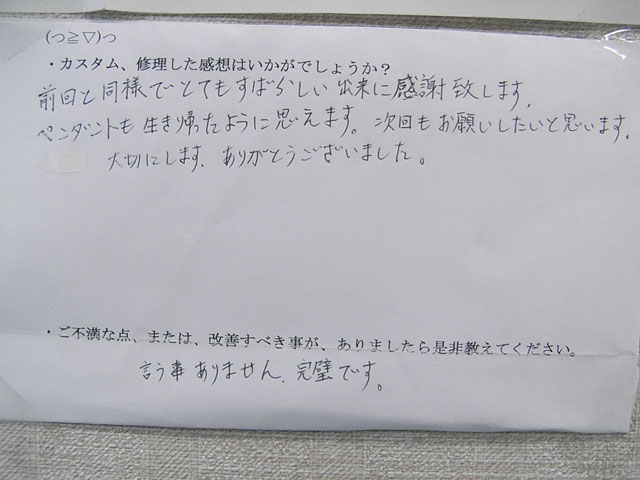 (つ≧▽)つ
・カスタム、修理した感想はいかがでしょうか？
前回と同様でとてもすばらしい出来に感謝致します。
ペンダントも生き帰ったように思えます。次回もお願いしたいと思います。
大切にします、ありがとうございました。
・ご不満な点、または、改善すべき事が、ありましたら是非教えてください。
言う事ありません、完璧です。